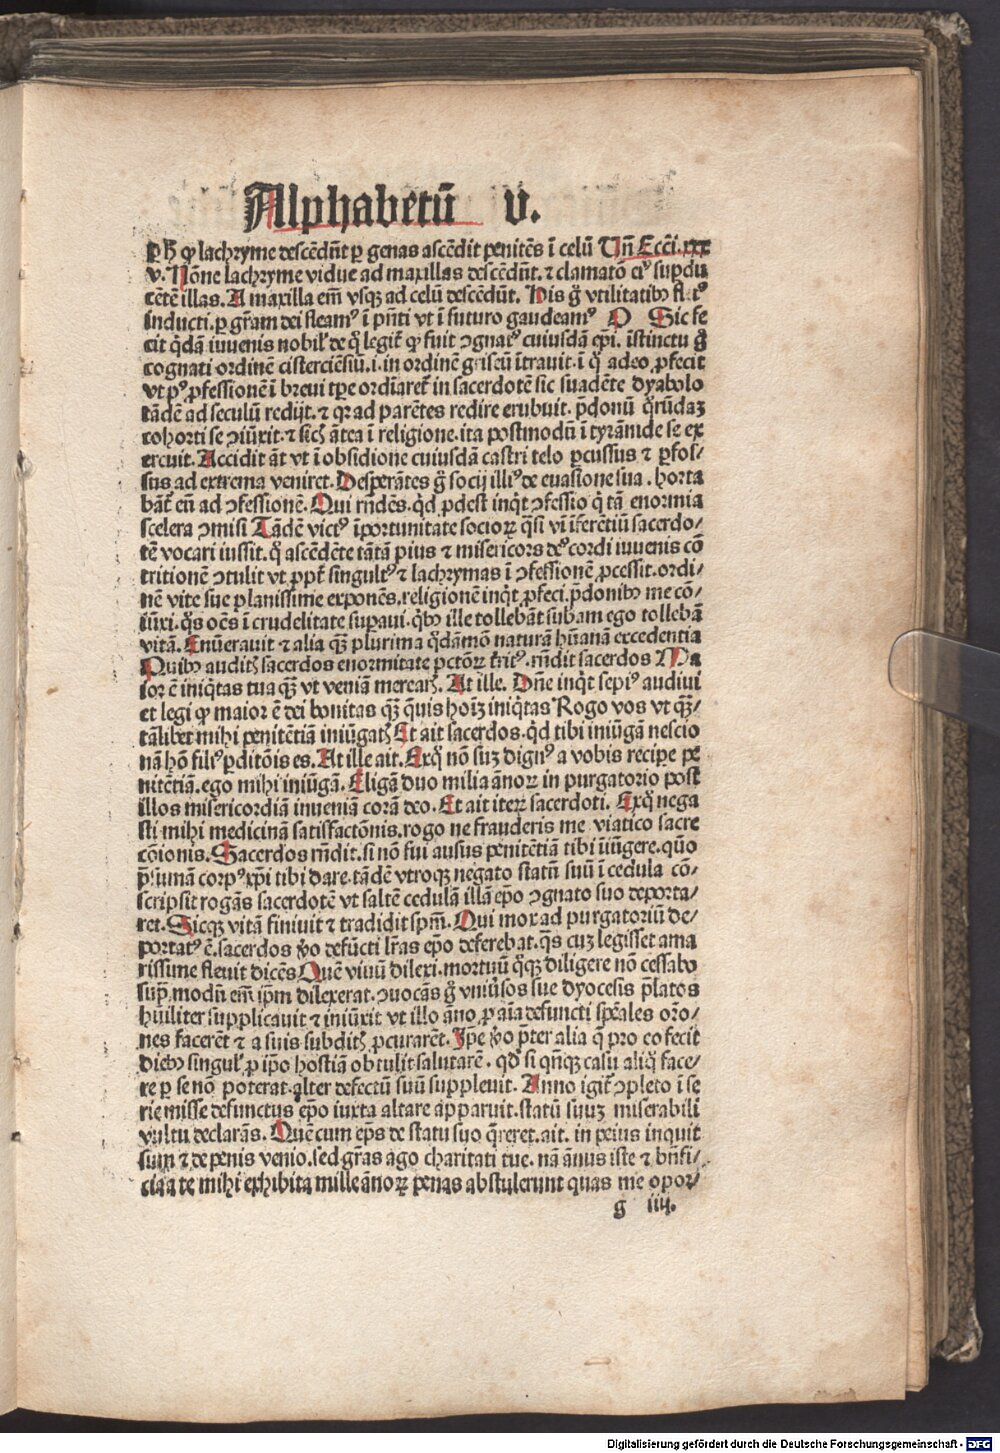 Alphabetū v.
ꝑ hͦ ꝙ lachryme descēdūt ꝑ genas ascēdit penitēs ī celū Uñ Ecci. xxx
v. Nōne lachryme vidue ad maxillas descēdūt. ⁊ clamatō eiꝰ supdu
cētē illas. A maxilla em̄ vsqꝫ ad celū descēdūt. His g̊ vtilitatibꝰ fr̄es
inducti. ꝑ gr̄am dei fleamꝰ ī p̄nti vt ī futuro gaudeamꝰ P Sic fe
cit q̄dā iuuenis nobilꝭ de q̊ legit̄ ꝙ fuit ꝯgnatꝰ cuiusdā ep̄i. īstinctu g̊
cognati ordinē cisterciēsiū. i. in ordinē griseū ītrauit. ī q̊ adeo ꝓfecit
vt pꝰ ꝓfessionē ī breui tꝑe ordīaret̄ in sacerdotē sic suadēte dyabolo
tādē ad seculū redijt. ⁊ qꝛ ad parētes redire erubuit. p̄donū q̊rūdaꝫ
cohorti se ꝯiūxit. ⁊ sicͣ ātea ī religione. ita postmodū ī tyrānide se ex
ercuit. Accidit āt vt ī obsidione cuiusdā castri telo ꝑcussus ⁊ ꝑfos⸗
sus ad extrema veniret. Desperātes g̊ socij illiꝰ de euasione sua. horta
bāt̄ eū ad ꝯfessionē. Qui rn̄dēs. qͥd ꝓdest inqͥt ꝯfessio q̄ tā enormia
scelera ꝯmisi Tādē victꝰ īportunitate socioꝝ q̄si vī īferētiū sacerdo⸗
tē vocari iussit. q̊ ascēdēte tātā pius ⁊ misericors deꝰ cordi iuuenis cō
tritionē ꝯtulit vt ꝓpt̄ singultꝰ ⁊ lachrymas ī ꝯfessionē ꝓcessit. ordi⸗
nē vite sue planissime exponēs. religionē inqͥt ꝓfeci. p̄donibꝰ me cō⸗
iūxi. q̊s oēs ī crudelitate supaui. qͥbꝰ ille tollebāt subam ego tollebā
vitā. Enūerauit ⁊ alia qꝫ plurima q̊dāmō naturā hūanā excedentia
Quibꝰ auditꝭ sacerdos enormitate pctōꝝ t̄ritꝰ. rn̄dit sacerdos Ma
ior ē iniqͥtas tua qꝫ vt veniā merearꝭ. At ille. Dn̄e inqͥt sepiꝰ audiui
et legi ꝙ maior ē dei bonitas qꝫ q̄uis hoīꝫ iniqͥtas Rogo vos vt qꝫ⸗
tālibet mihi penitētiā iniūgatꝭ Et ait sacerdos. qͥd tibi iniūgā nescio
nā hō filiꝰ ꝑditōis es. At ille ait. Exq̊ nō suꝫ dignꝰ a vobis recipe pe
nitētiā. ego mihi iniūgā. Eligā duo milia ānoꝝ in purgatorio post
illos misericordiā inueniā corā deo. Et ait iteꝝ sacerdoti. Exq̊ nega
sti mihi medicinā satisfactōnis. rogo ne frauderis me viatico sacre
cōionis. Sacerdos rn̄dit. si nō fui ausus penitētiā tibi iūgere. quo
p̄sumā corpꝰ xp̄i tibi dare. tādē vtroqꝫ negato statū suū ī cedula cō⸗
scripsit rogās sacerdotē vt saltē cedulā illā ep̄o ꝯgnato suo deporta⸗
ret. Sicqꝫ vitā finiuit ⁊ tradidit sp̄m. Qui mox ad purgatoriū de⸗
portatꝰ ē. sacerdos ꝟo defūcti lr̄as ep̄o deferebat. q̄s cuꝫ legisset ama
rissime fleuit dicēs Quē viuū dilexi. mortuū q̊qꝫ diligere nō cessabo
supͣ modū em̄ ip̄m dilexerat. ꝯuocās g̊ vniūsos sue dyocesis p̄latos
hūiliter supplicauit ⁊ iniūxit vt illo āno ꝓ aīa defuncti spēales orō⸗
nes facerēt ⁊ a suis subditꝭ ꝓcurarēt. Ip̄e ꝟo p̄ter alia q̄ pro eo fecit
diebꝰ singulꝭ ꝓ ip̄o hostiā obtulit salutarē. qd̓ si qn̄qꝫ casu aliq̊ face⸗
re ꝑ se nō poterat. alter defectū suū suppleuit. Anno igit̄ ꝯpleto ī se
rie misse defunctus ep̄o iuxta altare apparuit. statū suuꝫ miserabili
vultu declarās. Quē cum ep̄s de statu suo q̄reret. ait. in peius inquit
sum ⁊ de penis venio. sed gr̄as ago charitati tue. nā ānus iste ⁊ bn̄fi⸗
cia a te mihi exhibita mille ānoꝝ penas abstulerunt quas me opor⸗
g iiij.
Digitalisierung gefördert durch die Deutsche Forschungsgemeinschaft - DFG